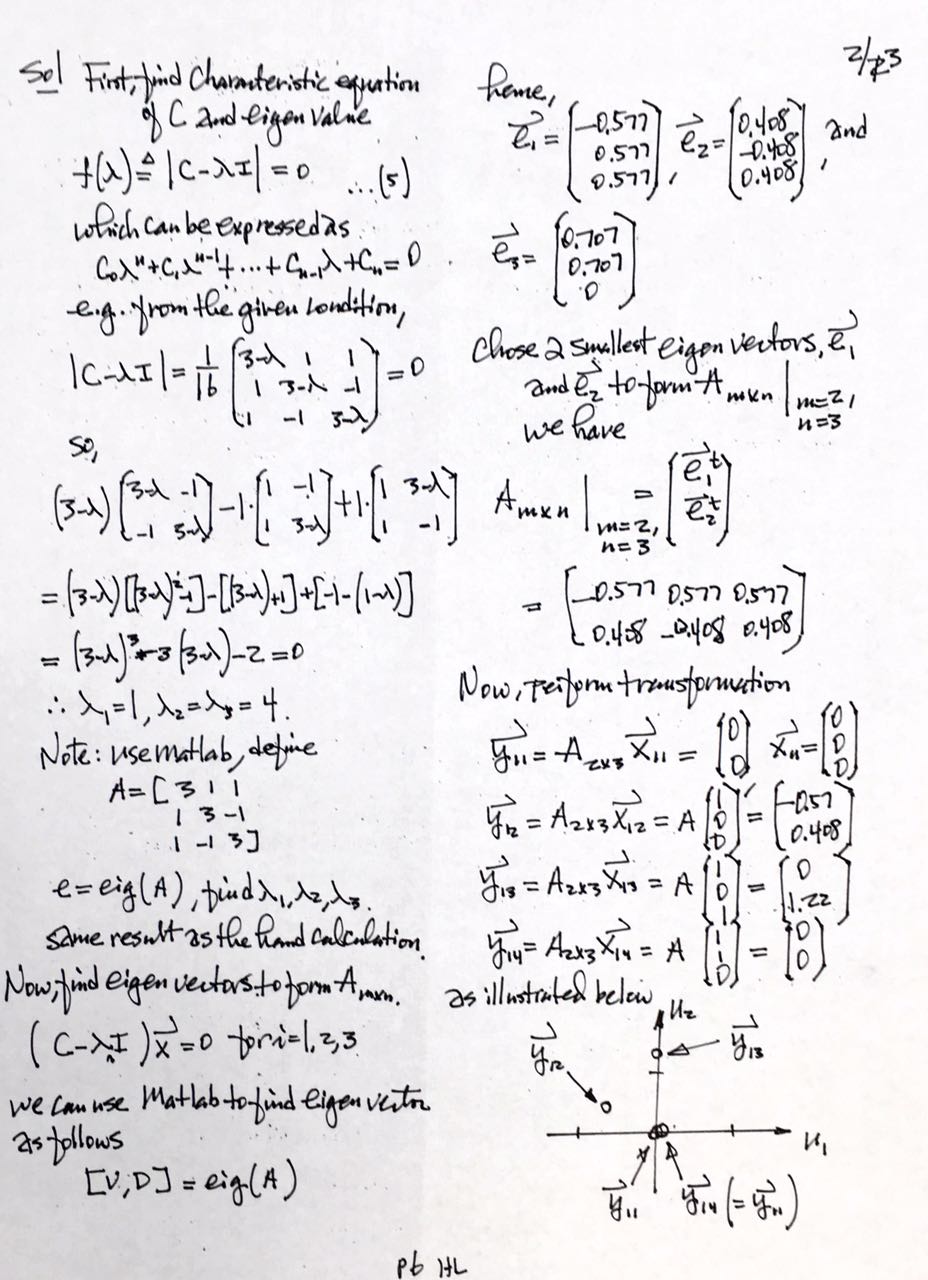 2/3
Sol First, find Characteristic equation
of C and eigen value
f(λ) ≜ |C-λI| = 0 ...(5)
which can be expressed as
C₀λⁿ+C₁λⁿ⁻¹+...+Cₙ₋₁λ+Cₙ=0
e.g. from the given condition,
|C-λI| = 1/16 [3-λ 1 1
1 3-λ -1
1 -1 3-λ] = 0
so,
(3-λ)[3-λ -1
-1 3-λ] -1·[1 -1
1 3-λ] +1·[1 3-λ
1 -1]
= (3-λ)[(3-λ)²-1]-[(3-λ)+1]+[-1-(1-λ)]
= (3-λ)³-3(3-λ)-2=0
∴ λ₁=1, λ₂=λ₃=4.
Note: use matlab, define
A=[3 1 1
1 3 -1
1 -1 3]
e=eig(A), find λ₁,λ₂,λ₃.
same result as the hand calculation.
Now, find eigen vectors to form Aₘₓₙ.
(C-λI)x⃗=0 for i=1,2,3
we can use Matlab to find eigen vector
as follows
[V,D] = eig(A)
hence,
e⃗₁ = [-0.577
0.577
0.577], e⃗₂ = [0.408
-0.408
0.408], and
e⃗₃ = [0.707
0.707
0]
Chose 2 smallest eigen vectors, e⃗₁
and e⃗₂ to form Aₘₓₙ | m=2,
n=3
we have
Aₘₓₙ | m=2,
n=3 = [e⃗₁ᵗ
e⃗₂ᵗ]
= [-0.577 0.577 0.577
0.408 -0.408 0.408]
Now, perform transformation
y⃗₁₁ = A₂ₓ₃ x⃗₁₁ = [0
0] x⃗₁₁ = [0
0
0]
y⃗₁₂ = A₂ₓ₃ x⃗₁₂ = A [1
0
0] = [-0.57
0.408]
y⃗₁₃ = A₂ₓ₃ x⃗₁₃ = A [1
0
1] = [0
1.22]
y⃗₁₄ = A₂ₓ₃ x⃗₁₄ = A [1
1
0] = [0
0]
as illustrated below
μ₂
y⃗₁₂
y⃗₁₃
μ₁
y⃗₁₁
y⃗₁₄ (=y⃗₁₁)
P6 HL